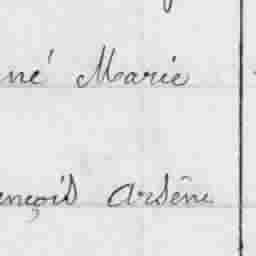 né Marie
ençois Arsène